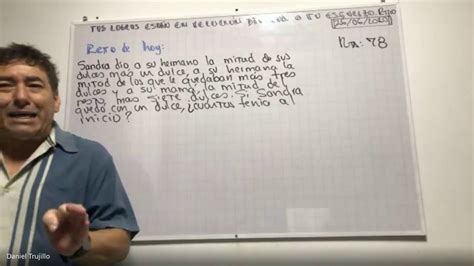 TUS LOGROS ESTÁN EN RELACIÓN DIRECTA A TU ESFUERZO.
Reto de hoy:
Nr: 78
Sandra dio a su hermano la mitad de sus
dulces más un dulce, a su hermana la
mitad de los que le quedaban más tres
dulces y a su mamá, la mitad del
resto, más siete dulces. Si Sandra
quedó con un dulce, ¿cuántos tenía al
inicio?
Daniel Trujillo